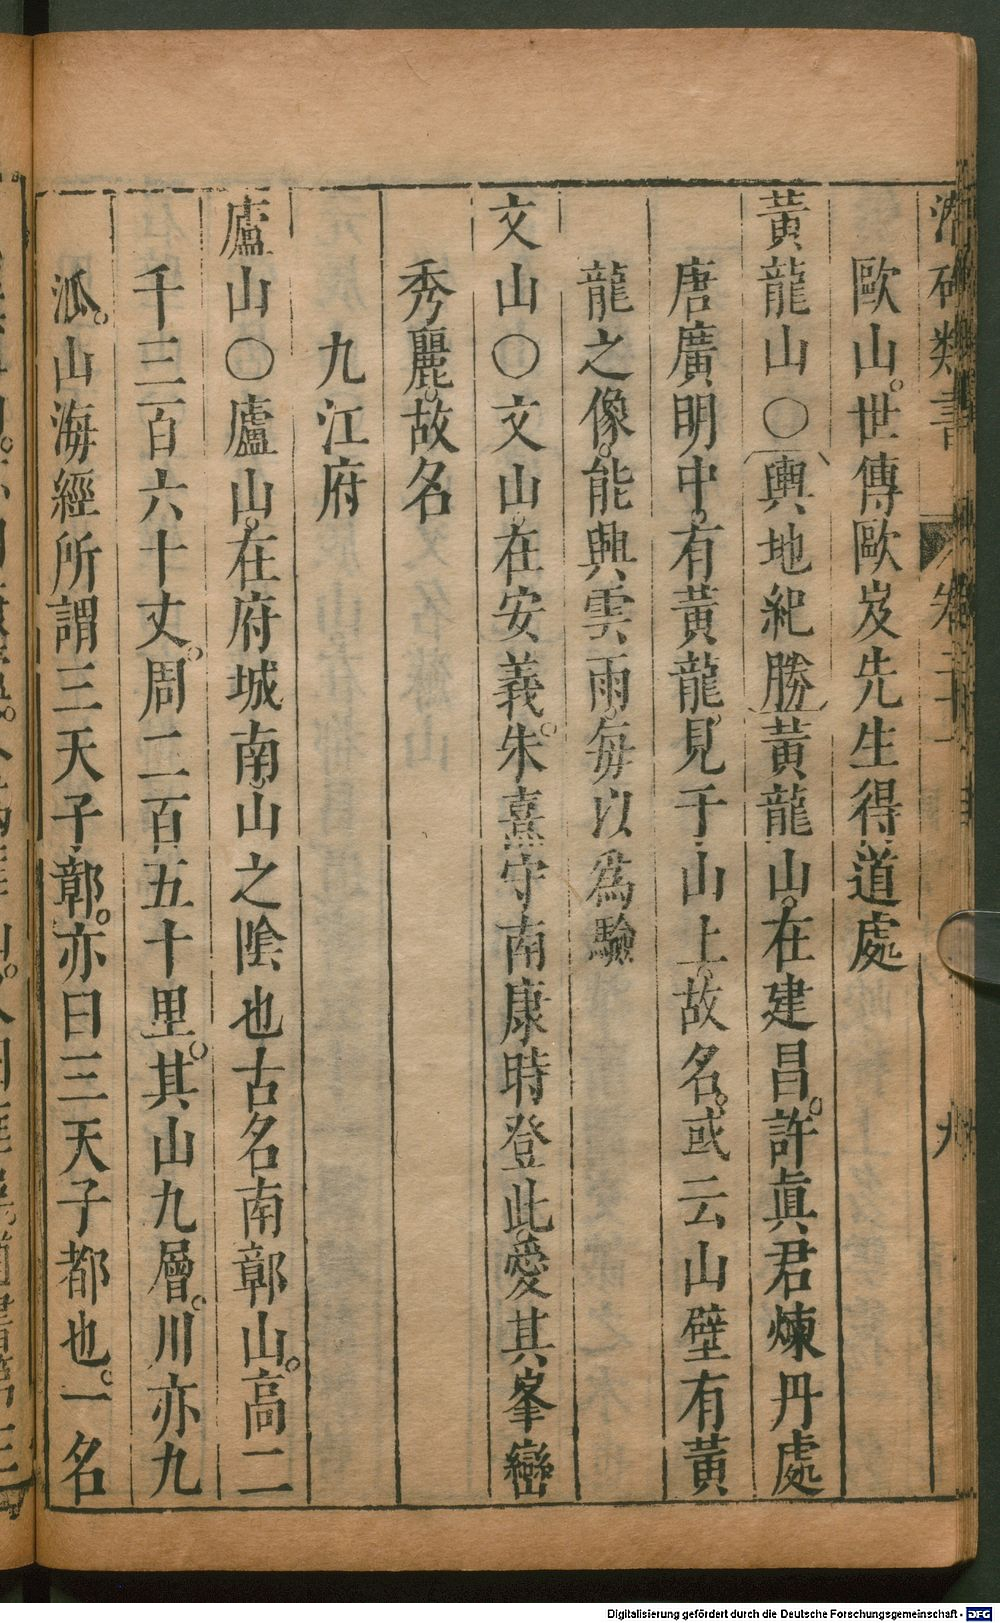 潛確類書 卷二十一 九
歐山。世傳歐岌先生得道處
黃龍山○輿地紀勝黃龍山。在建昌。許眞君煉丹處
唐廣明中。有黃龍。見于山上。故名。或云山壁有黃
龍之像。能興雲雨。每以爲驗
文山○文山。在安義。朱熹守南康時登此。愛其峯巒
秀麗。故名
九江府
廬山○廬山。在府城南。山之陰也古名南鄣山。高二
千三百六十丈。周二百五十里。其山九層。川亦九
派。山海經所謂三天子鄣。亦曰三天子都也。一名
Digitalisierung gefördert durch die Deutsche Forschungsgemeinschaft - DFG